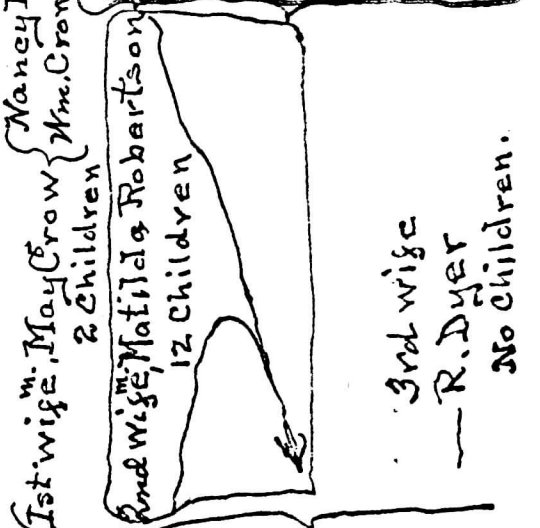 1st wife, m. May Crow { Nancy
Wm. Crow
2 Children
2nd wife, m. Matilda Robertson
12 Children
3rd wife
— R. Dyer
No Children.